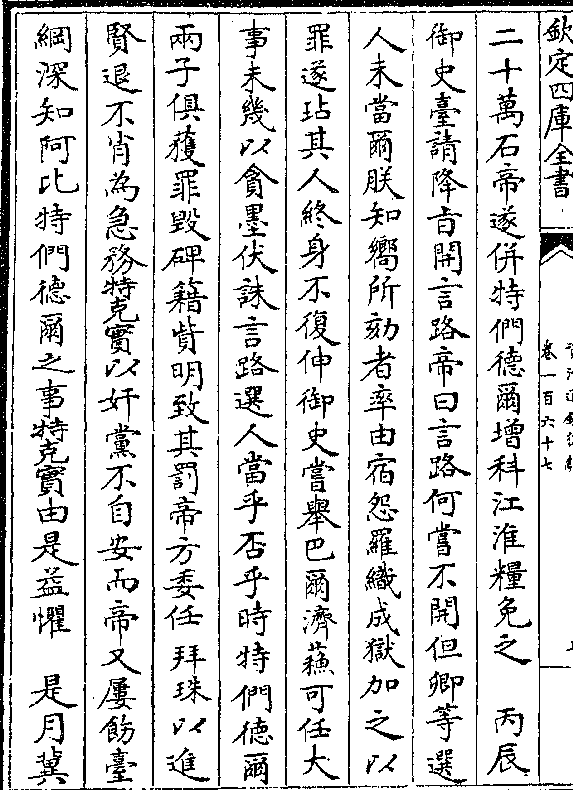 欽定四庫全書
卷一百六十七
二十萬石帝遂併特們德爾增科江淮糧免之　丙辰
御史臺請降旨開言路帝曰言路何嘗不開但卿等選
人未當爾朕知嚮所劾者率由宿怨羅織成獄加之以
罪遂玷其人終身不復伸御史嘗舉巴爾濟蘓可任大
事未幾以貪墨伏誅言路選人當乎否乎時特們德爾
兩子俱獲罪毀碑籍貲明致其罰帝方委任拜珠以進
賢退不肖為急務特克實以奸黨不自安而帝又屢飭臺
綱深知阿比特們德爾之事特克實由是益懼　是月冀